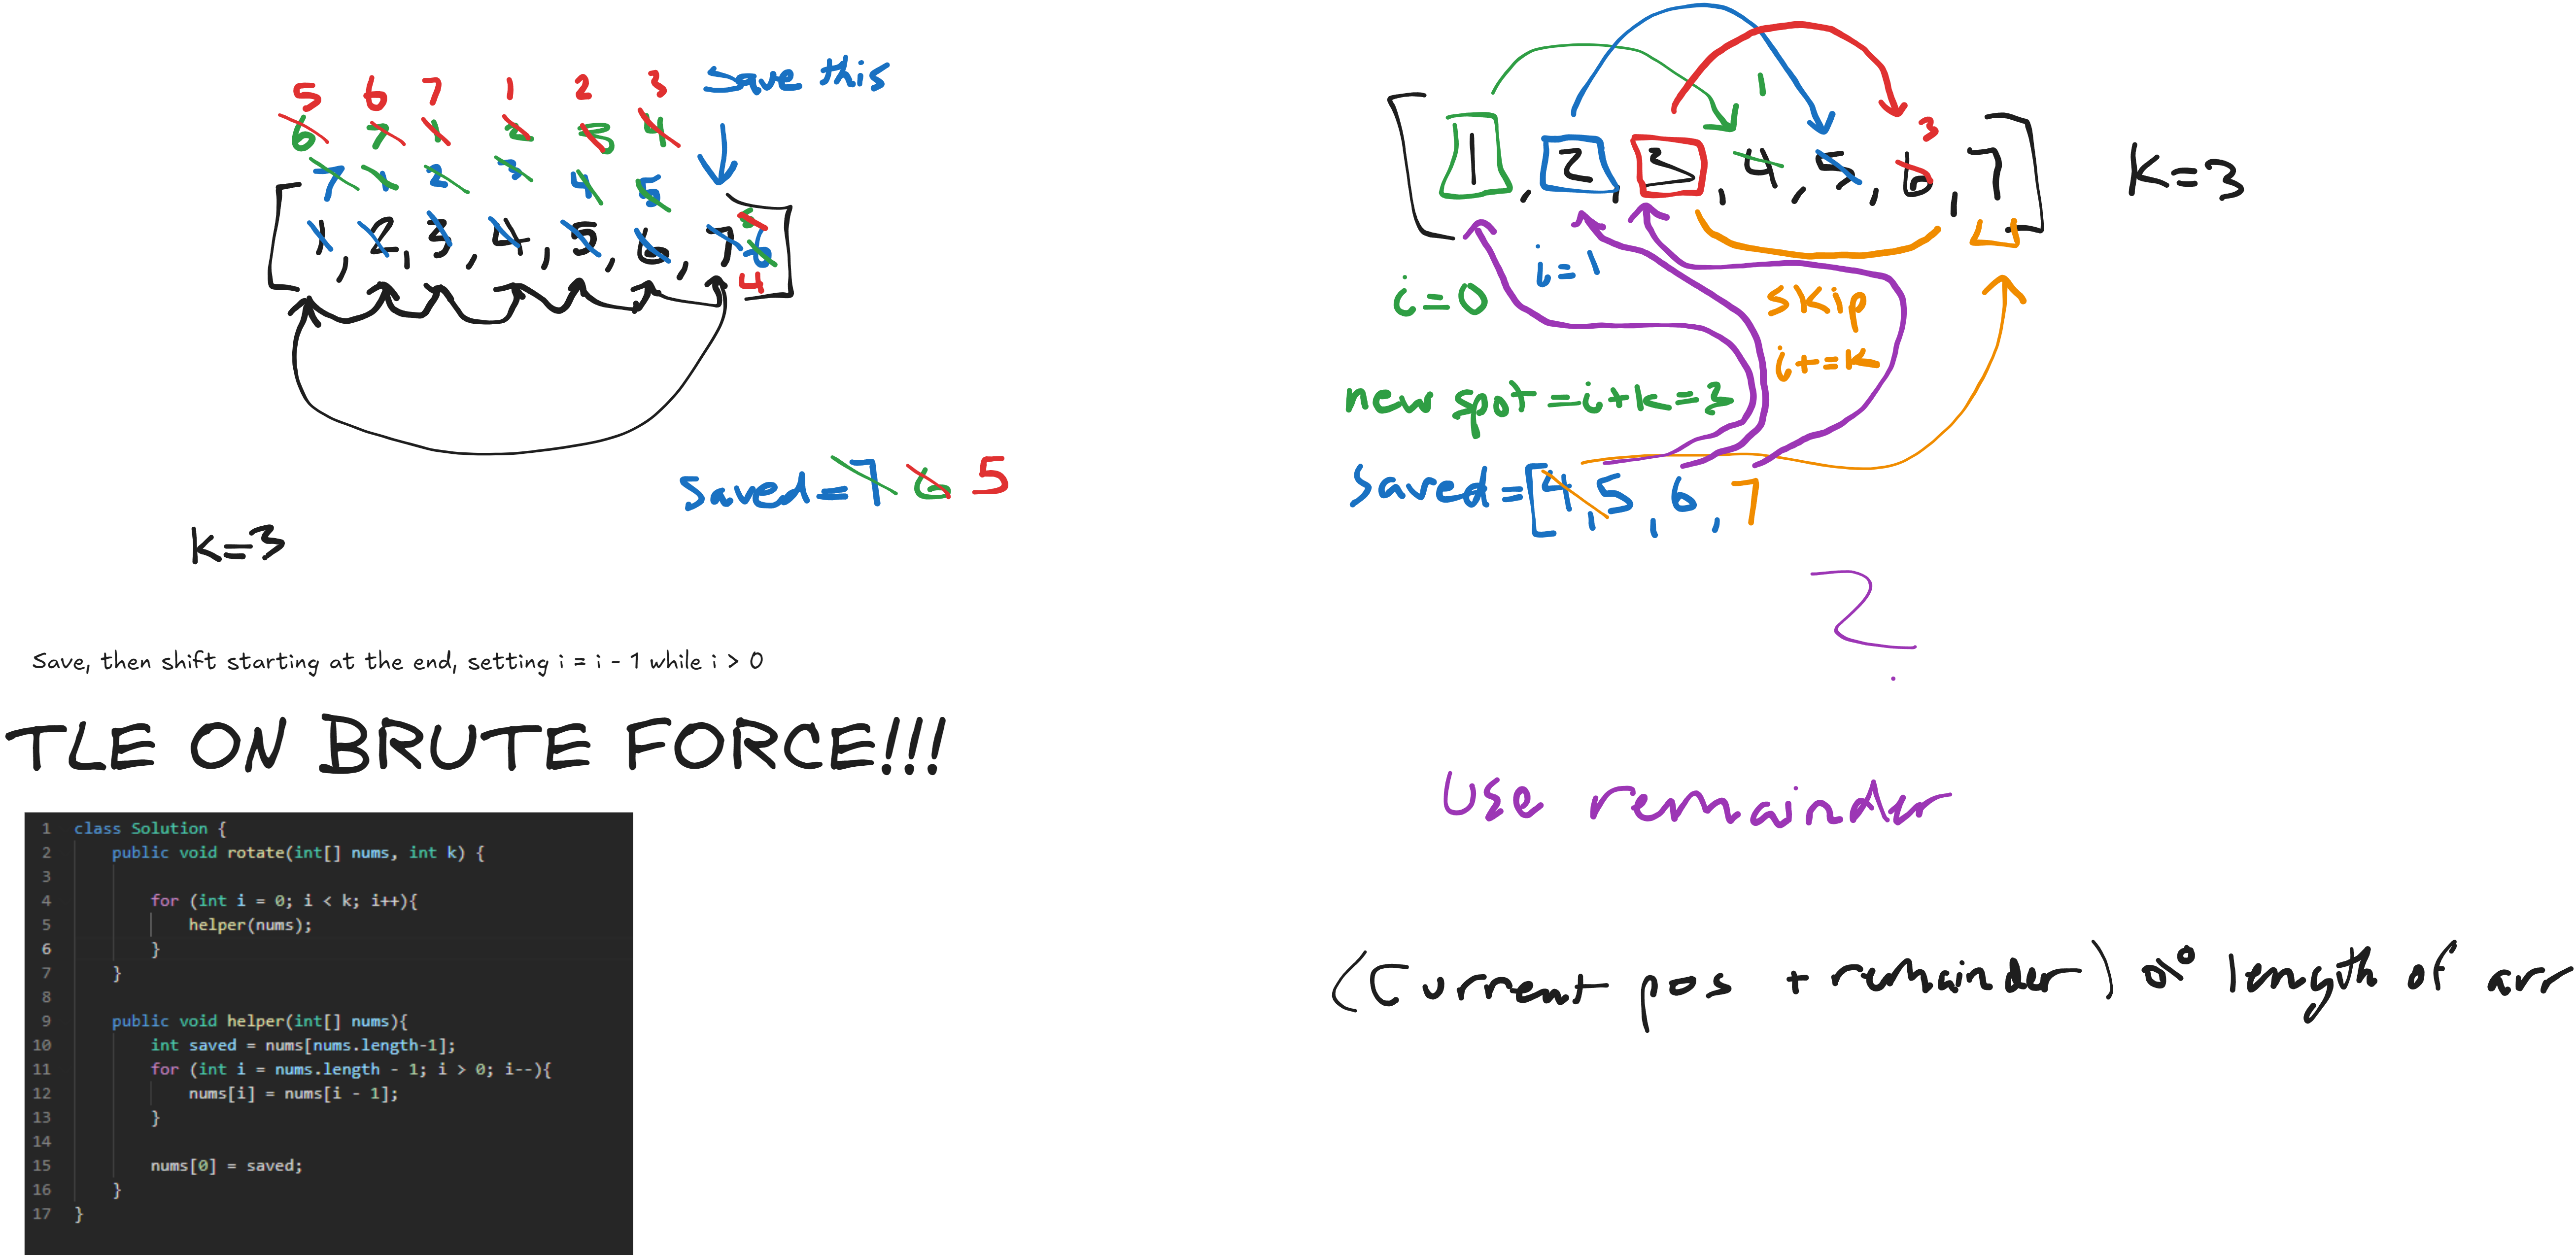 5 6 7 1 2 3
6 7 1 2 3 4
7 1 2 3 4 5
[1, 2, 3, 4, 5, 6, 7]
5
6
4
Save this
saved = 7 6 5
K=3
Save, then shift starting at the end, setting i = i - 1 while i > 0
TLE ON BRUTE FORCE!!!
1 class Solution {
2 public void rotate(int[] nums, int k) {
3
4 for (int i = 0; i < k; i++){
5 helper(nums);
6 }
7 }
8
9 public void helper(int[] nums){
10 int saved = nums[nums.length-1];
11 for (int i = nums.length - 1; i > 0; i--){
12 nums[i] = nums[i - 1];
13 }
14
15 nums[0] = saved;
16 }
17 }
1
3
[1, 2, 3, 4, 5, 6, 7]
K=3
4
i=0
i=1
skip
i+=k
new spot =i+k=3
saved=[4,5,6,7
?
Use remainder
(Current pos + remainder) % length of arr